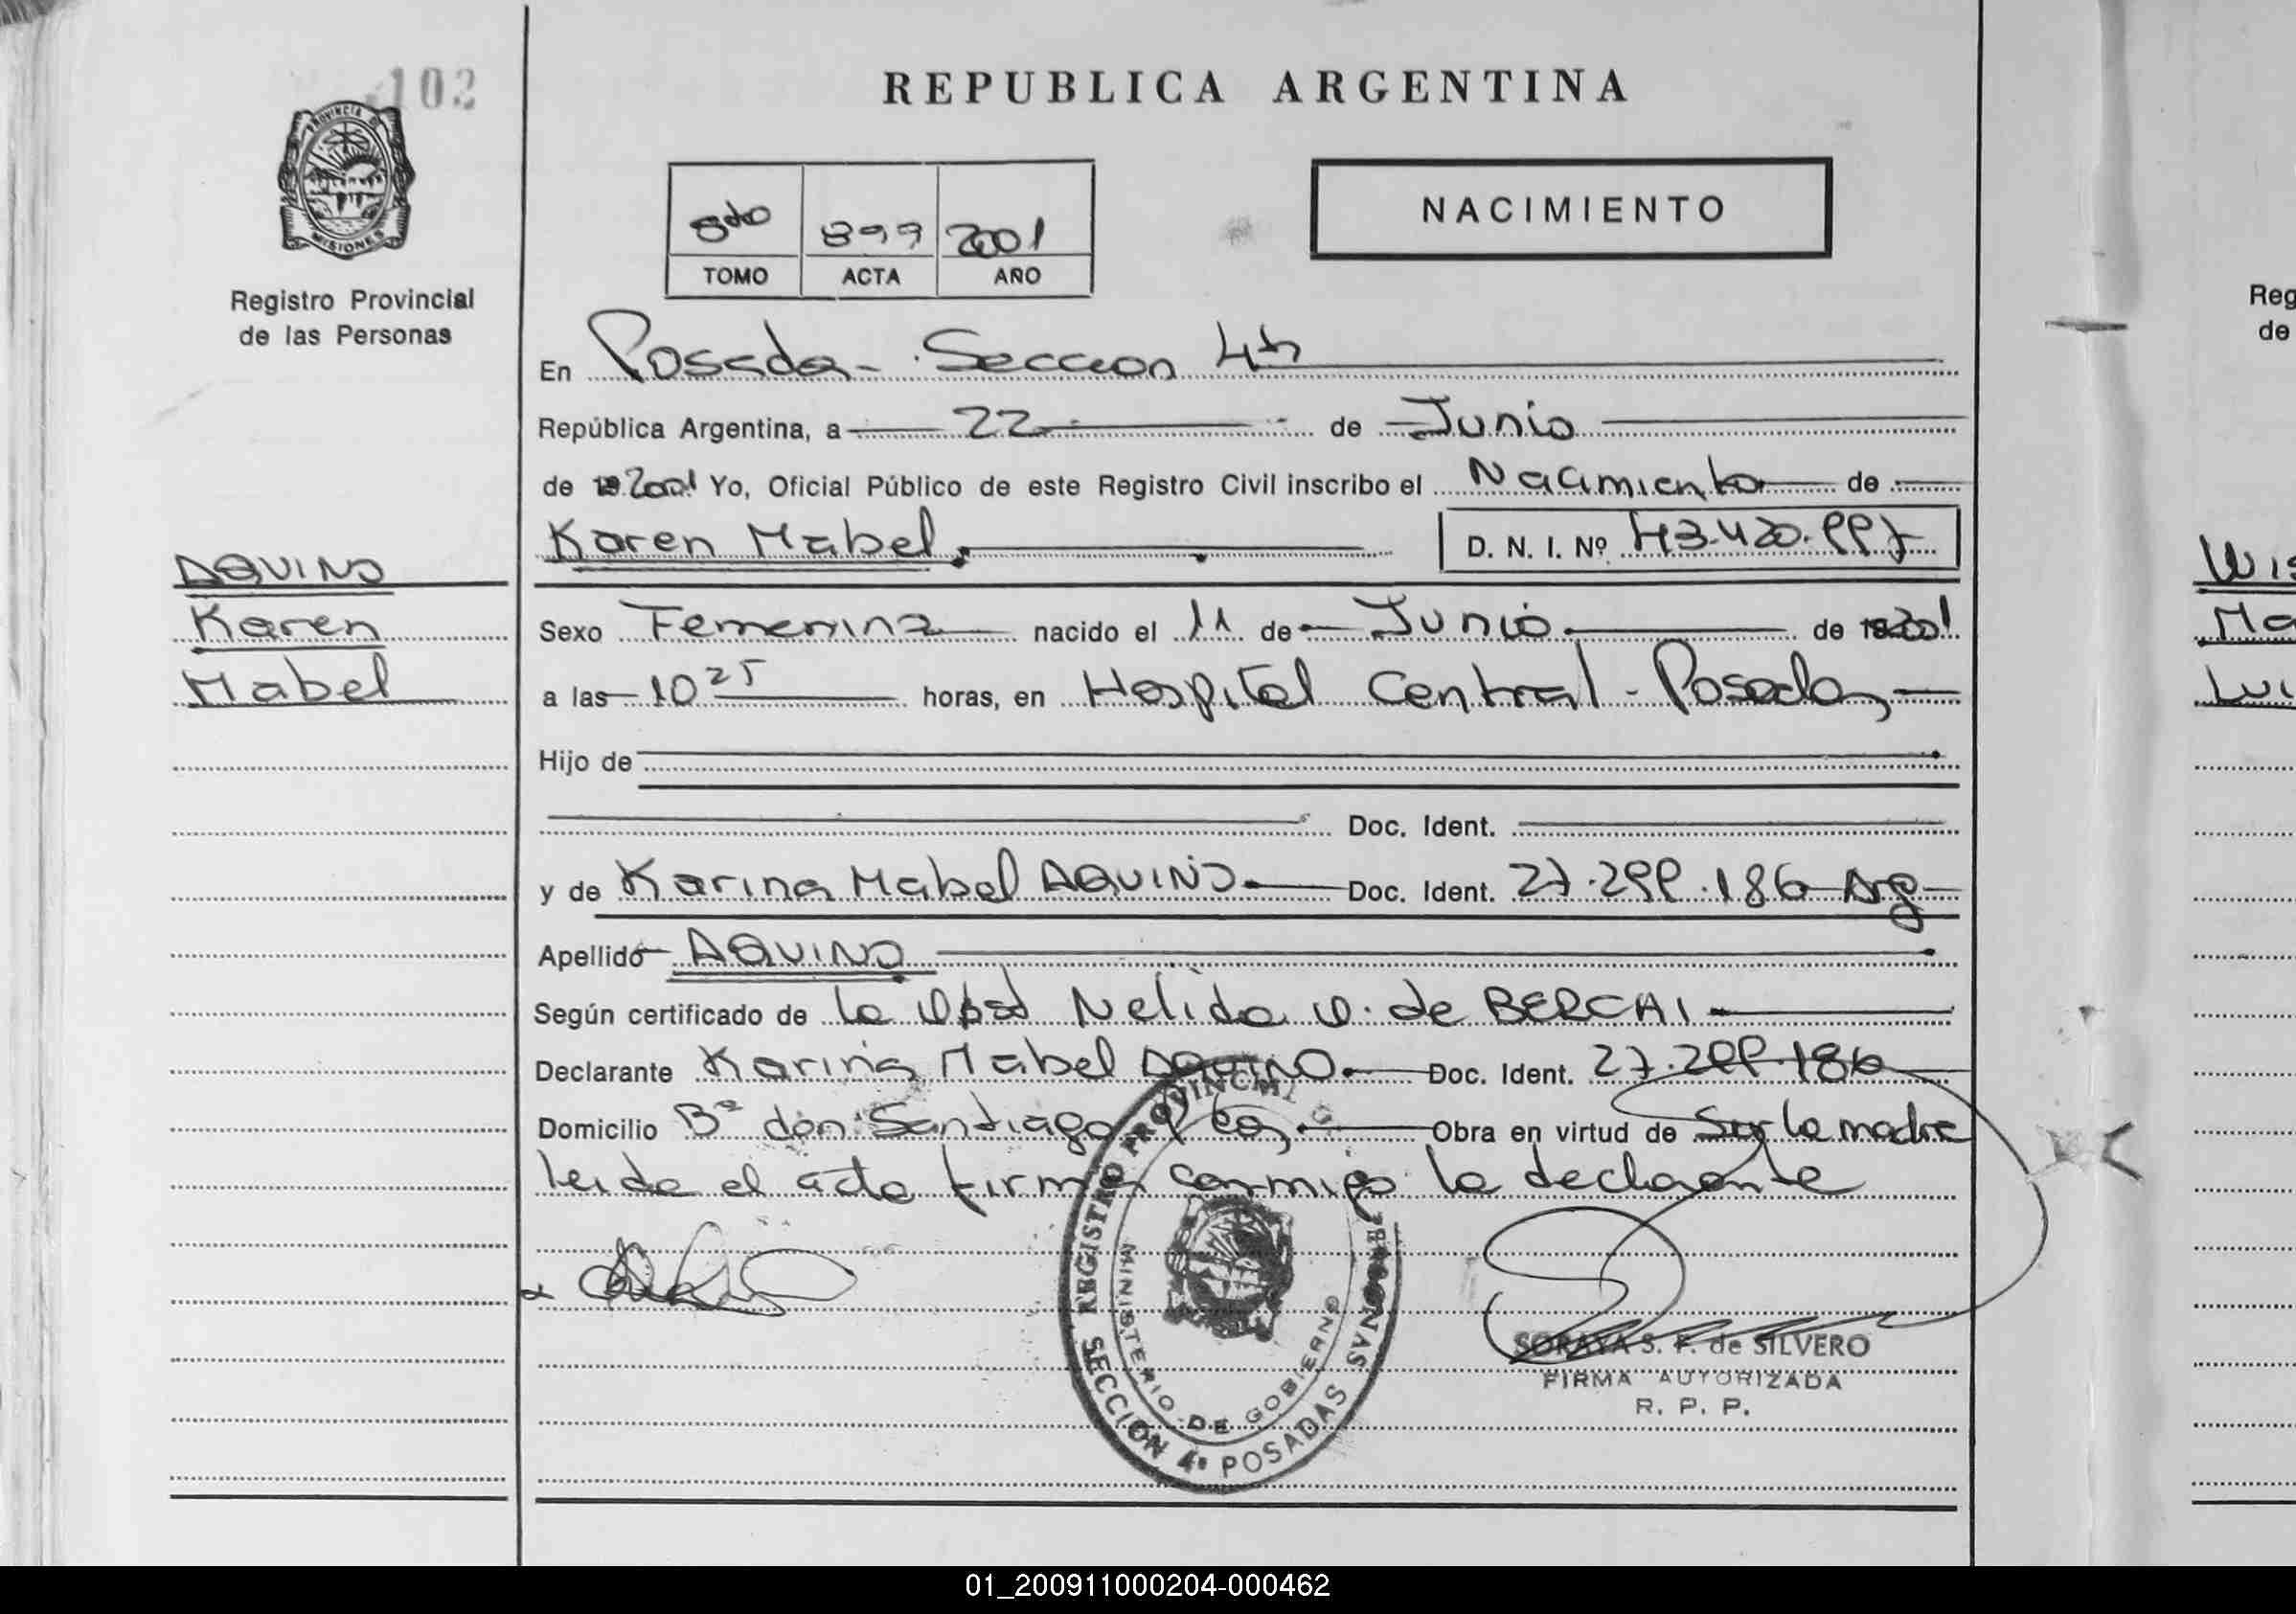 102
REPUBLICA ARGENTINA
PROVINCIA DE
MISIONES
Registro Provincial
de las Personas
8to 899 2001
TOMO ACTA AÑO
NACIMIENTO
En Posadas - Seccion 4ta
República Argentina, a 22 de Junio
de 2001 Yo, Oficial Público de este Registro Civil inscribo el Nacimiento de
Karen Mabel D. N. I. Nº 43.420.997
AQUINO
Karen
Mabel
Sexo Femenina nacido el 11 de Junio de 2001
a las 10 25 horas, en Hospital Central - Posadas
Hijo de
Doc. Ident.
y de Karina Mabel AQUINO Doc. Ident. 27.299.186 Arg
Apellido AQUINO
Según certificado de la Obst Nelida O. de BERCHI
Declarante Karina Mabel AQUINO Doc. Ident. 27.299.186
Domicilio Bº don Santiago Obra en virtud de Ser la madre
Leida el acta firma conmigo la declarante
REGISTRO PROVINCIAL PERSONAS
MINISTERIO DE GOBIERNO
SECCION 4ª POSADAS
SORAYA S. F. de SILVERO
FIRMA AUTORIZADA
R. P. P.
Reg
de
Wis
Ma
Lui
01_200911000204-000462